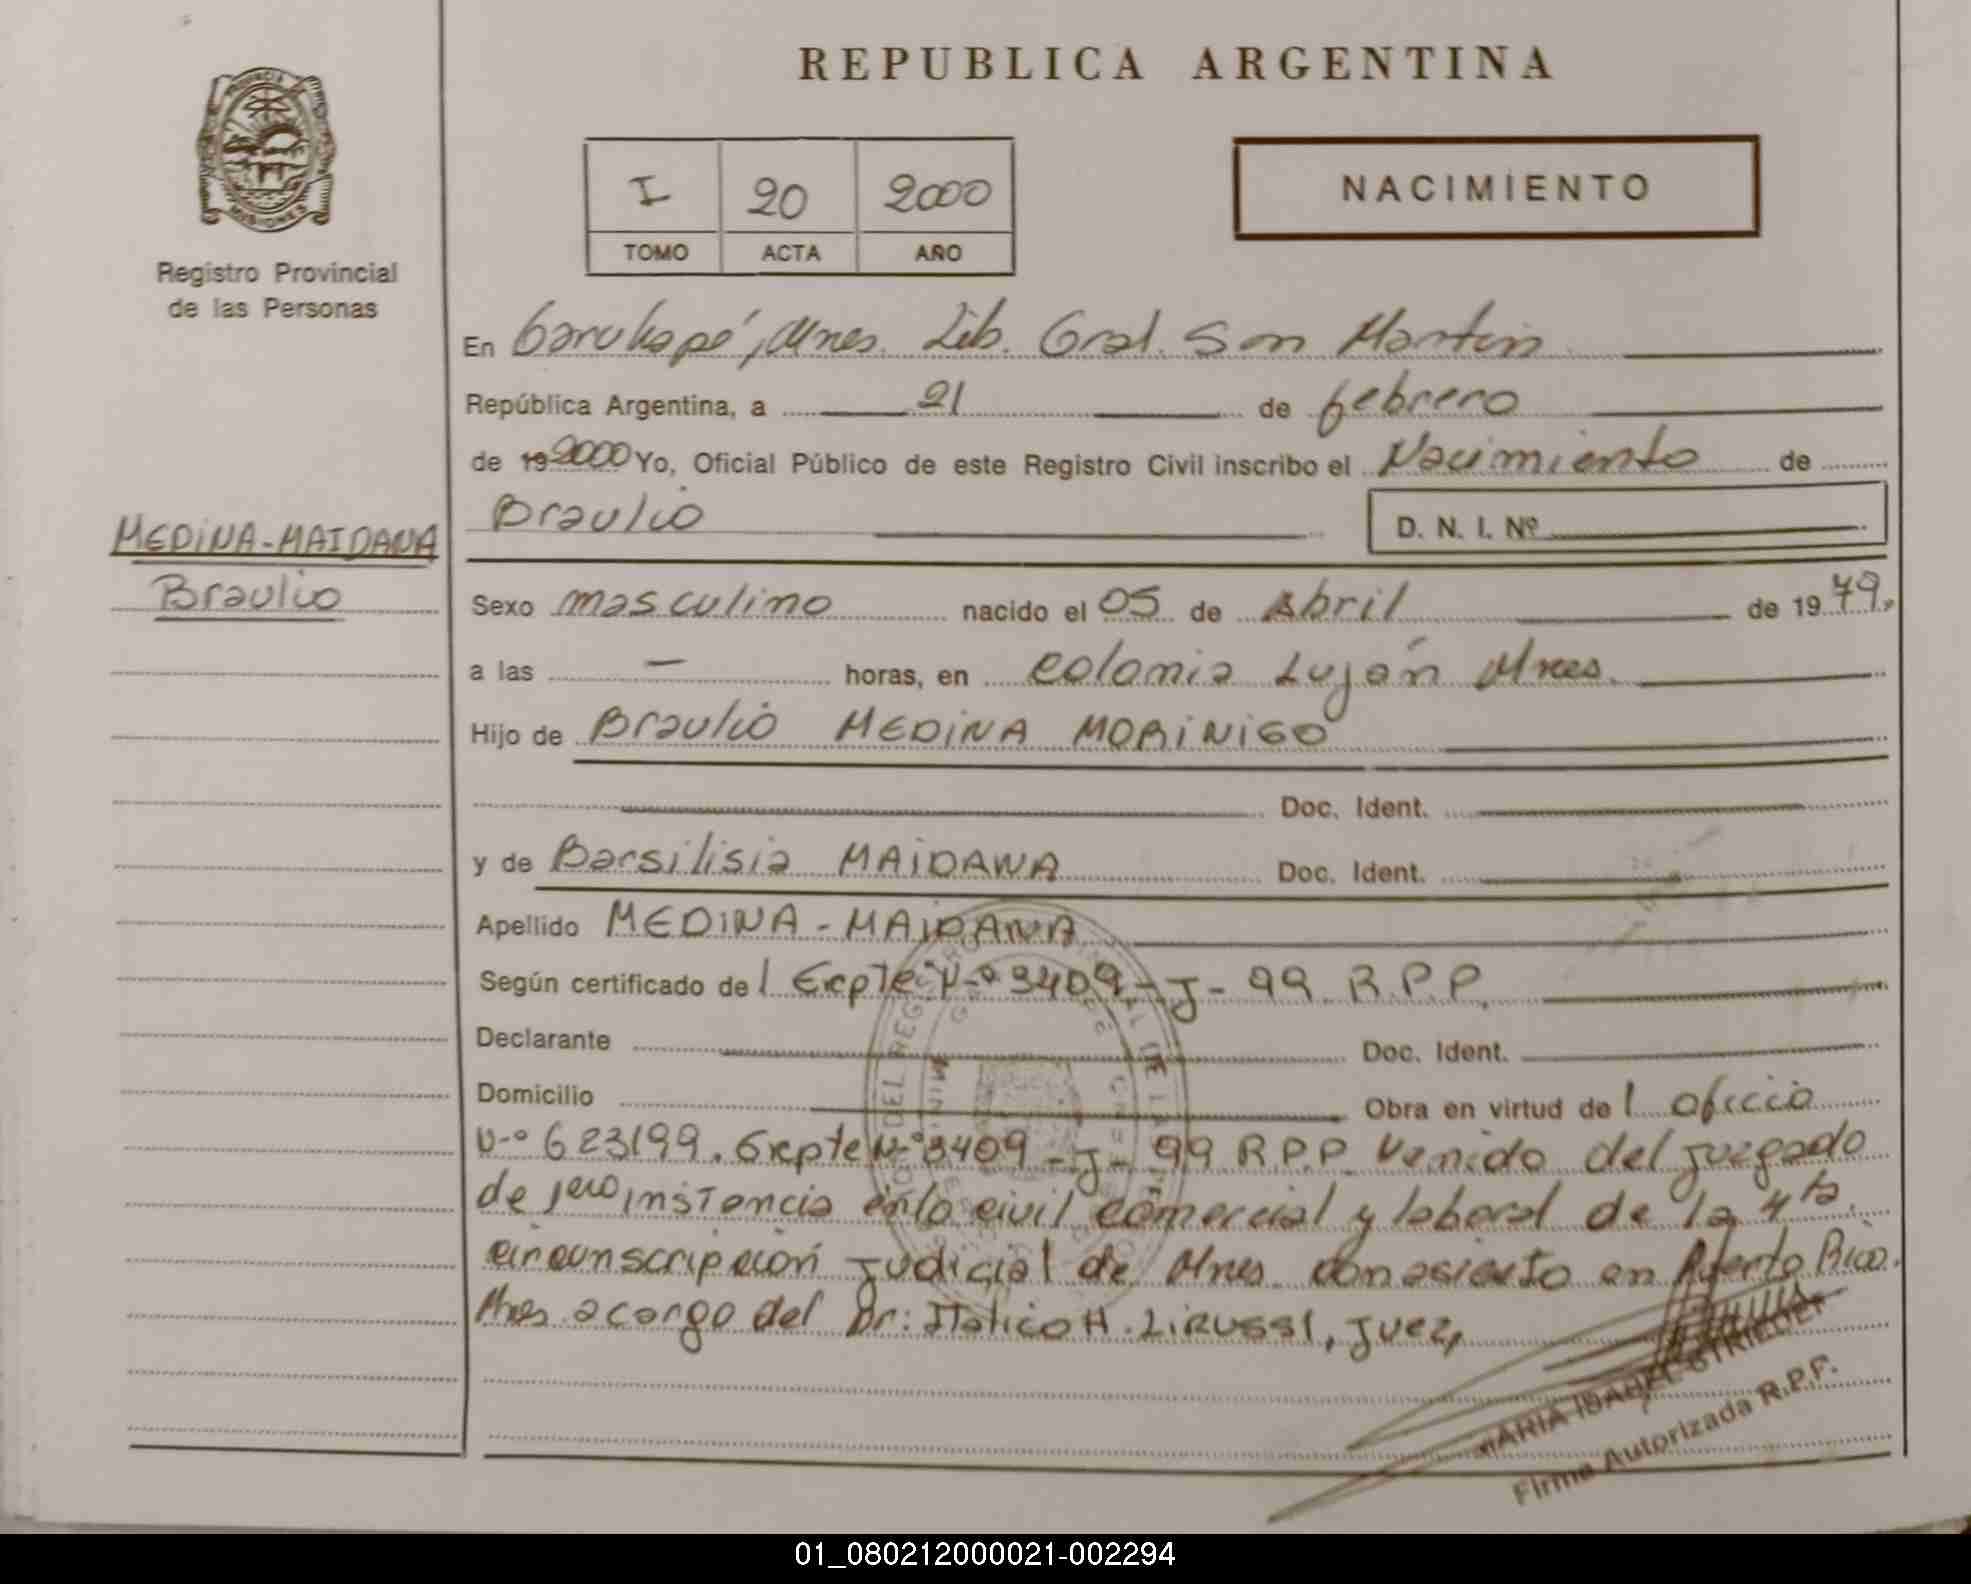 REPUBLICA ARGENTINA
PROVINCIA
MISIONES
Registro Provincial
de las Personas
I 20 2000
TOMO ACTA AÑO
NACIMIENTO
En Garuhapé, Mnes. Lib. Gral. San Martin
República Argentina, a 21 de febrero
de 19 2000 Yo, Oficial Público de este Registro Civil inscribo el Nacimiento de
Braulio D. N. I. Nº
MEDINA-MAIDANA
Braulio
Sexo masculino nacido el 05 de Abril de 1979.
a las — horas, en Colonia Luján Mnes.
Hijo de Braulio MEDINA MORINIGO
Doc. Ident.
y de Barsilisia MAIDANA Doc. Ident.
Apellido MEDINA-MAIDANA
Según certificado de l Expte. N-º 3409-J-99 R.P.P.
Declarante Doc. Ident.
Domicilio Obra en virtud de l oficio
N-º 623199. Expte N-º 3409-J-99 R.P.P. Venido del juzgado
de 1ero instancia en lo civil comercial y laboral de la 4ta.
circunscripción judicial de Mnes. con asiento en Puerto Rico.
Mnes a cargo del Dr: Italico H. LIRUSSI, juez,
MARIA ISABEL STRIEDER
Firma Autorizada R.P.F.
01_080212000021-002294